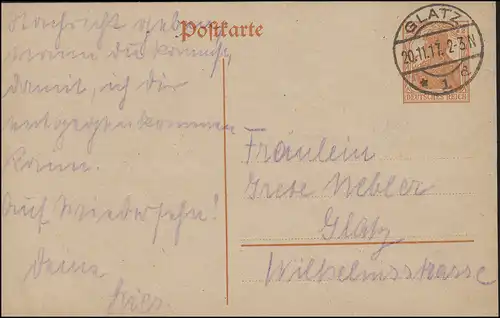 Postkarte
GLATZ
20.11.17. 2-3.N
* 1 d
DEUTSCHES REICH
Nachricht geben
wann du kommst,
damit ich dir
entgegenkommen
kann.
Auf Wiedersehn!
Deine
Fräulein
Grete Nebler
Glatz
Wilhelmsstrasse